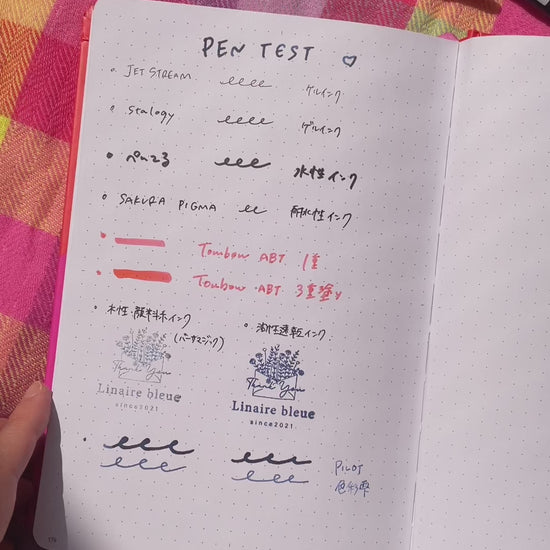 PEN TEST
JET STREAM ゲルインク
stalogy ゲルインク
ぺんてる 水性インク
SAKURA PIGMA 耐水性インク
Tombow ABT 1重
Tombow ABT 3重塗り
水性・顔料系インク
(バーサマジック)
油性速乾インク
Thank You
Linaire bleue
since2021
Thank You
Linaire bleue
since2021
PILOT
色彩雫
176